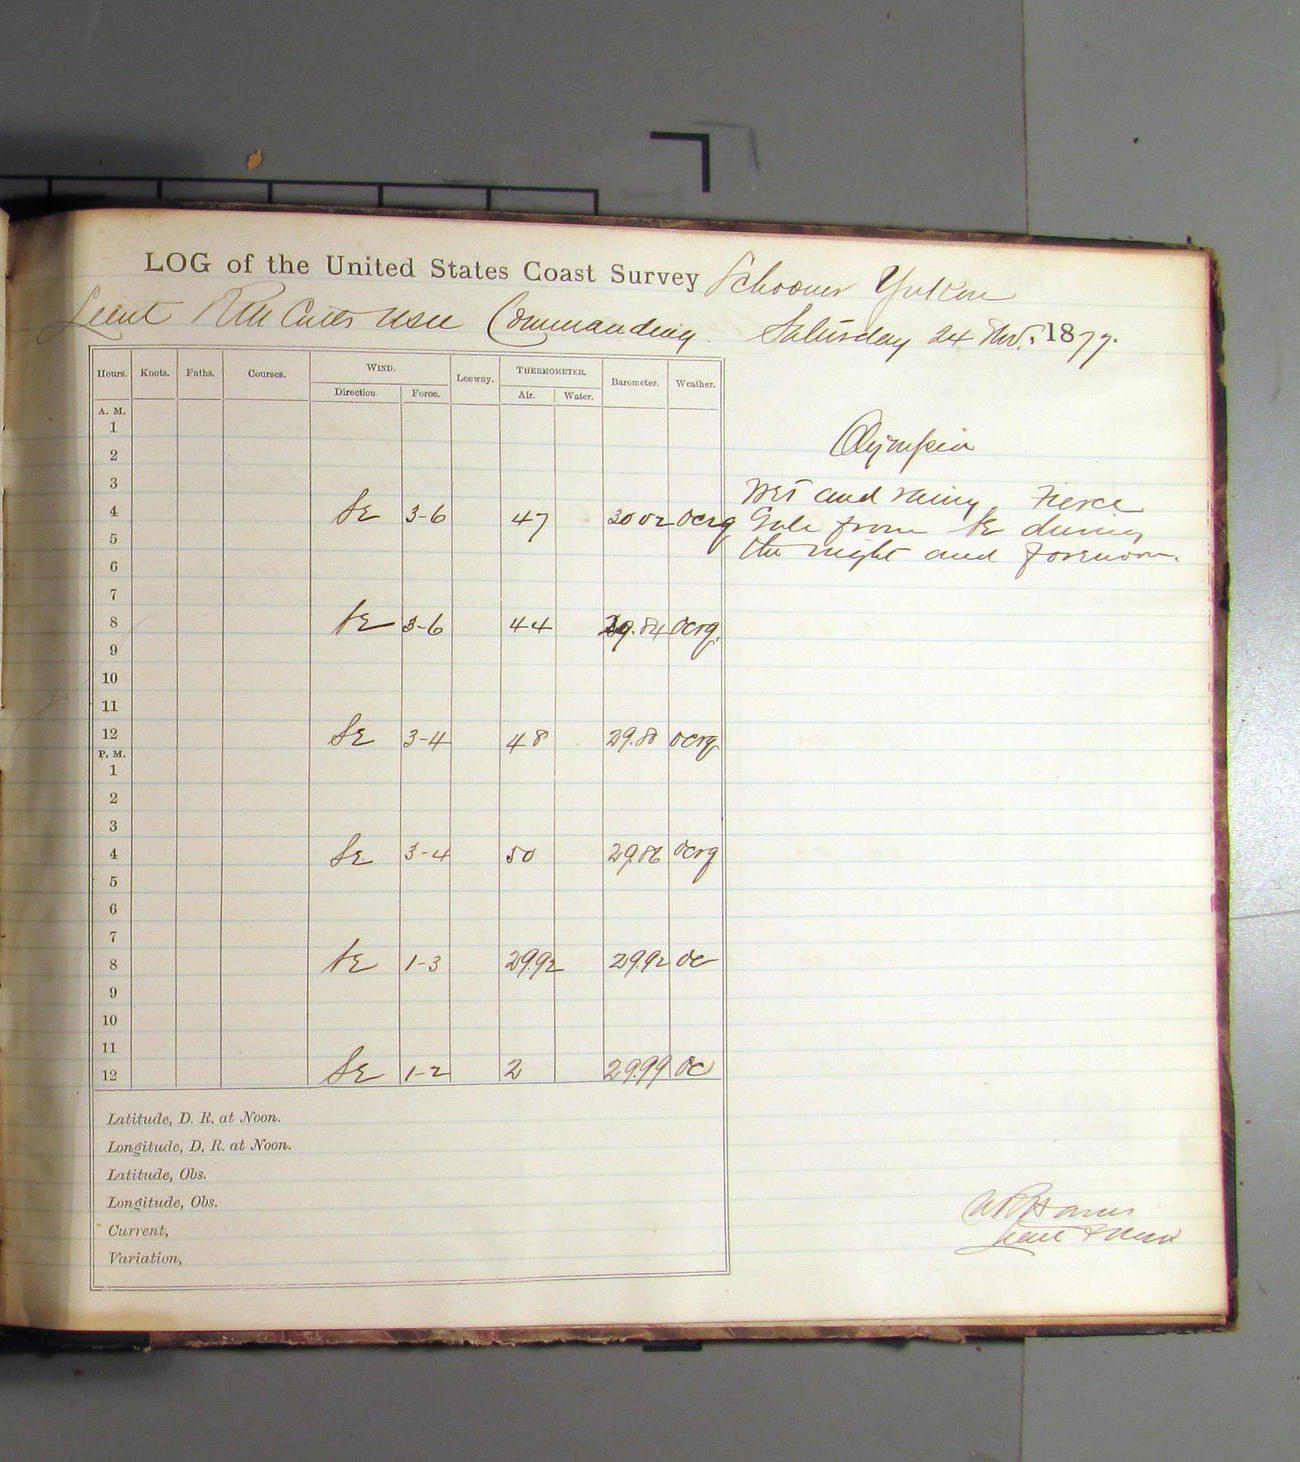 LOG of the United States Coast Survey Schooner Yukon
Lieut Commanding Saturday 24 Nov. 1877.
Hours. Knots. Faths. Courses. WIND. Leeway. THERMOMETER. Barometer. Weather.
Direction. Force. Air. Water.
A. M.
1
Olympia
2
3
Wet and rainy Fierce
4 SE 3-6 47 30 02 ocrg
Gale from SE during
5
the night and forenoon.
6
7
8 SE 3-6 44 29.84 ocrg.
9
10
11
12 SE 3-4 48 29.80 ocrg
P. M.
1
2
3
4 SE 3-4 50 2986 ocrg
5
6
7
8 SE 1-3 29.92 2992 oc
9
10
11
12 SE 1-2 2 29.99 oc
Latitude, D. R. at Noon.
Longitude, D. R. at Noon.
Latitude, Obs.
Longitude, Obs.
Current,
Variation,
Lieut